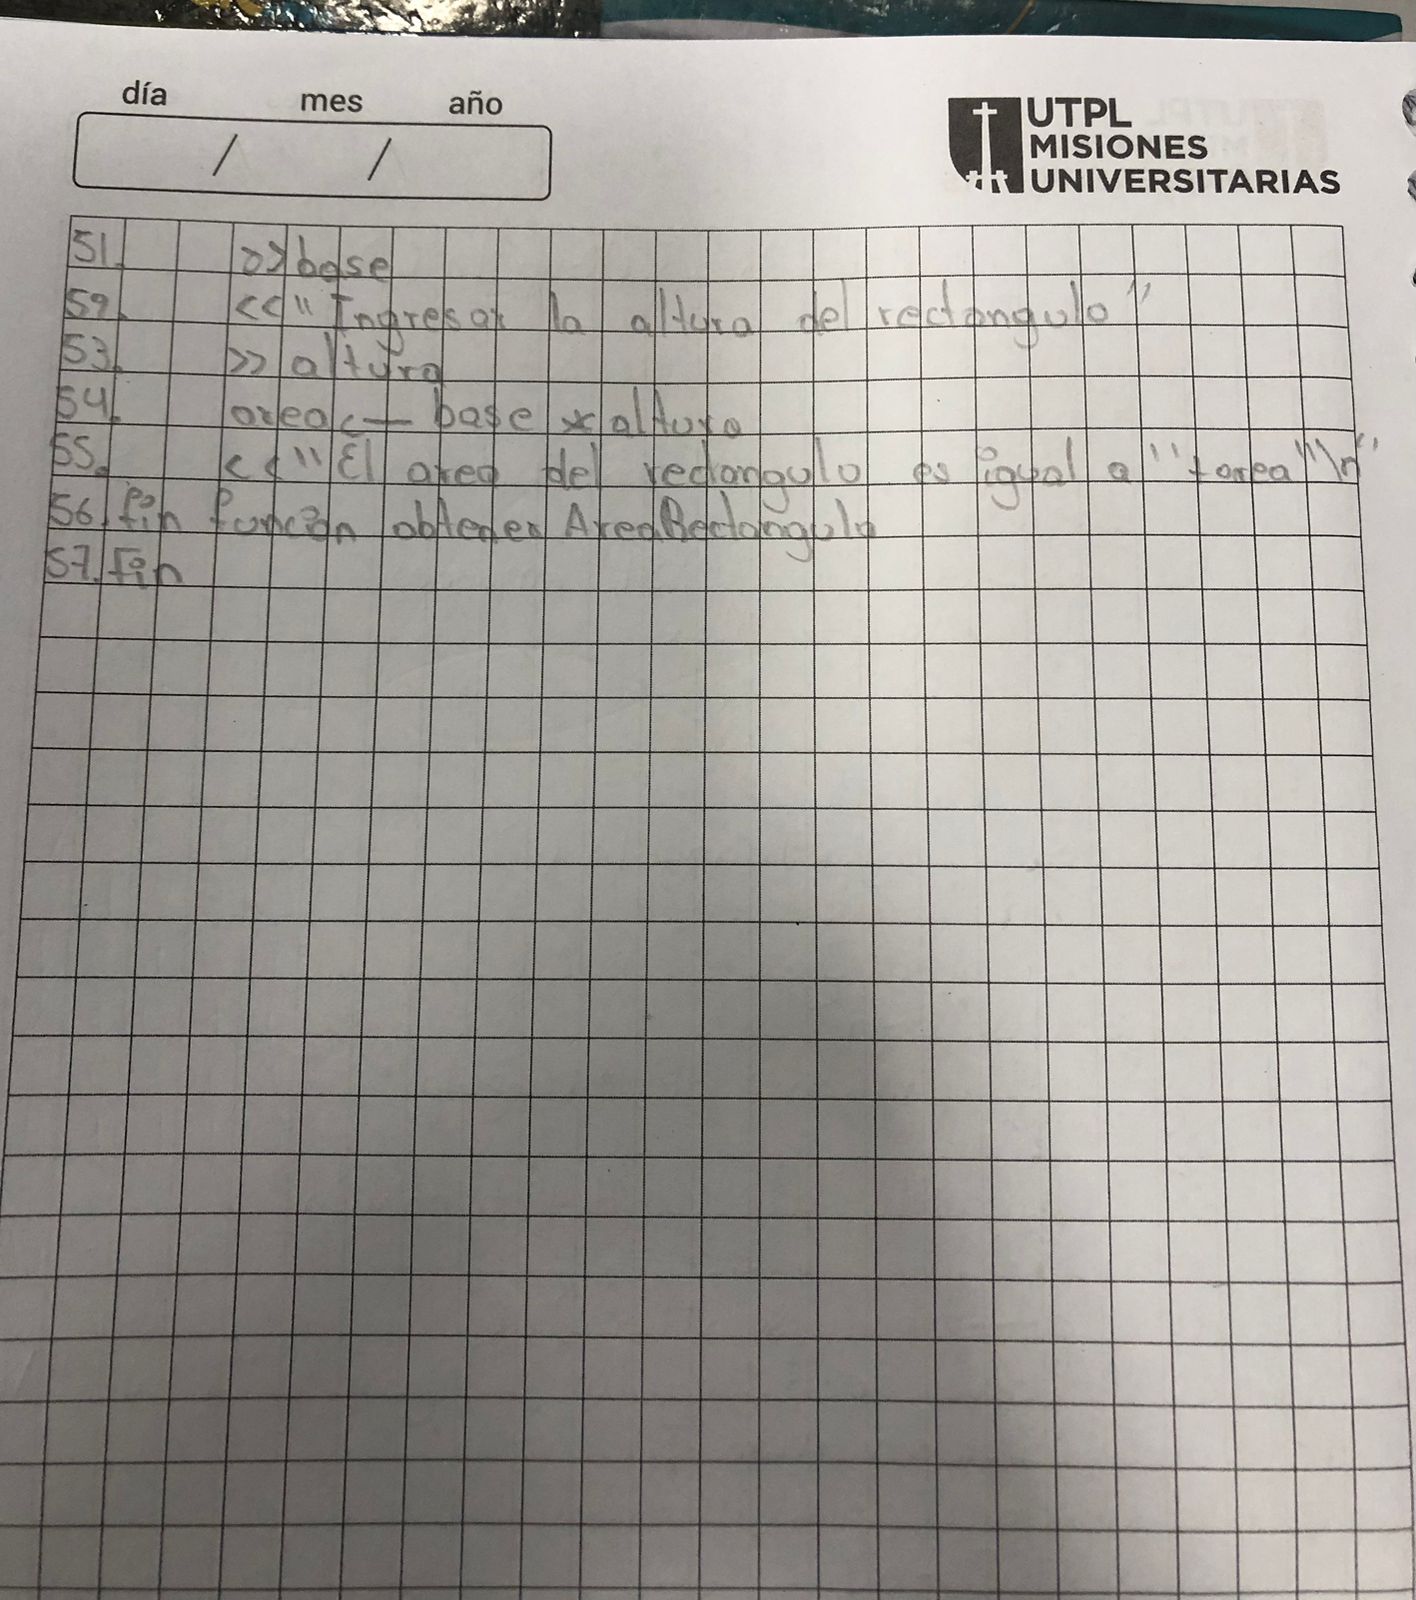 día mes año
/ /
UTPL
MISIONES
UNIVERSITARIAS
51. >>base
52. <<"Ingresar la altura del rectangulo"
53. >> altura
54. area <— base * altura
55. <<"El area del rectangulo es igual a "+area"\n"
56. fin función obtener AreaRectangulo
57. fin